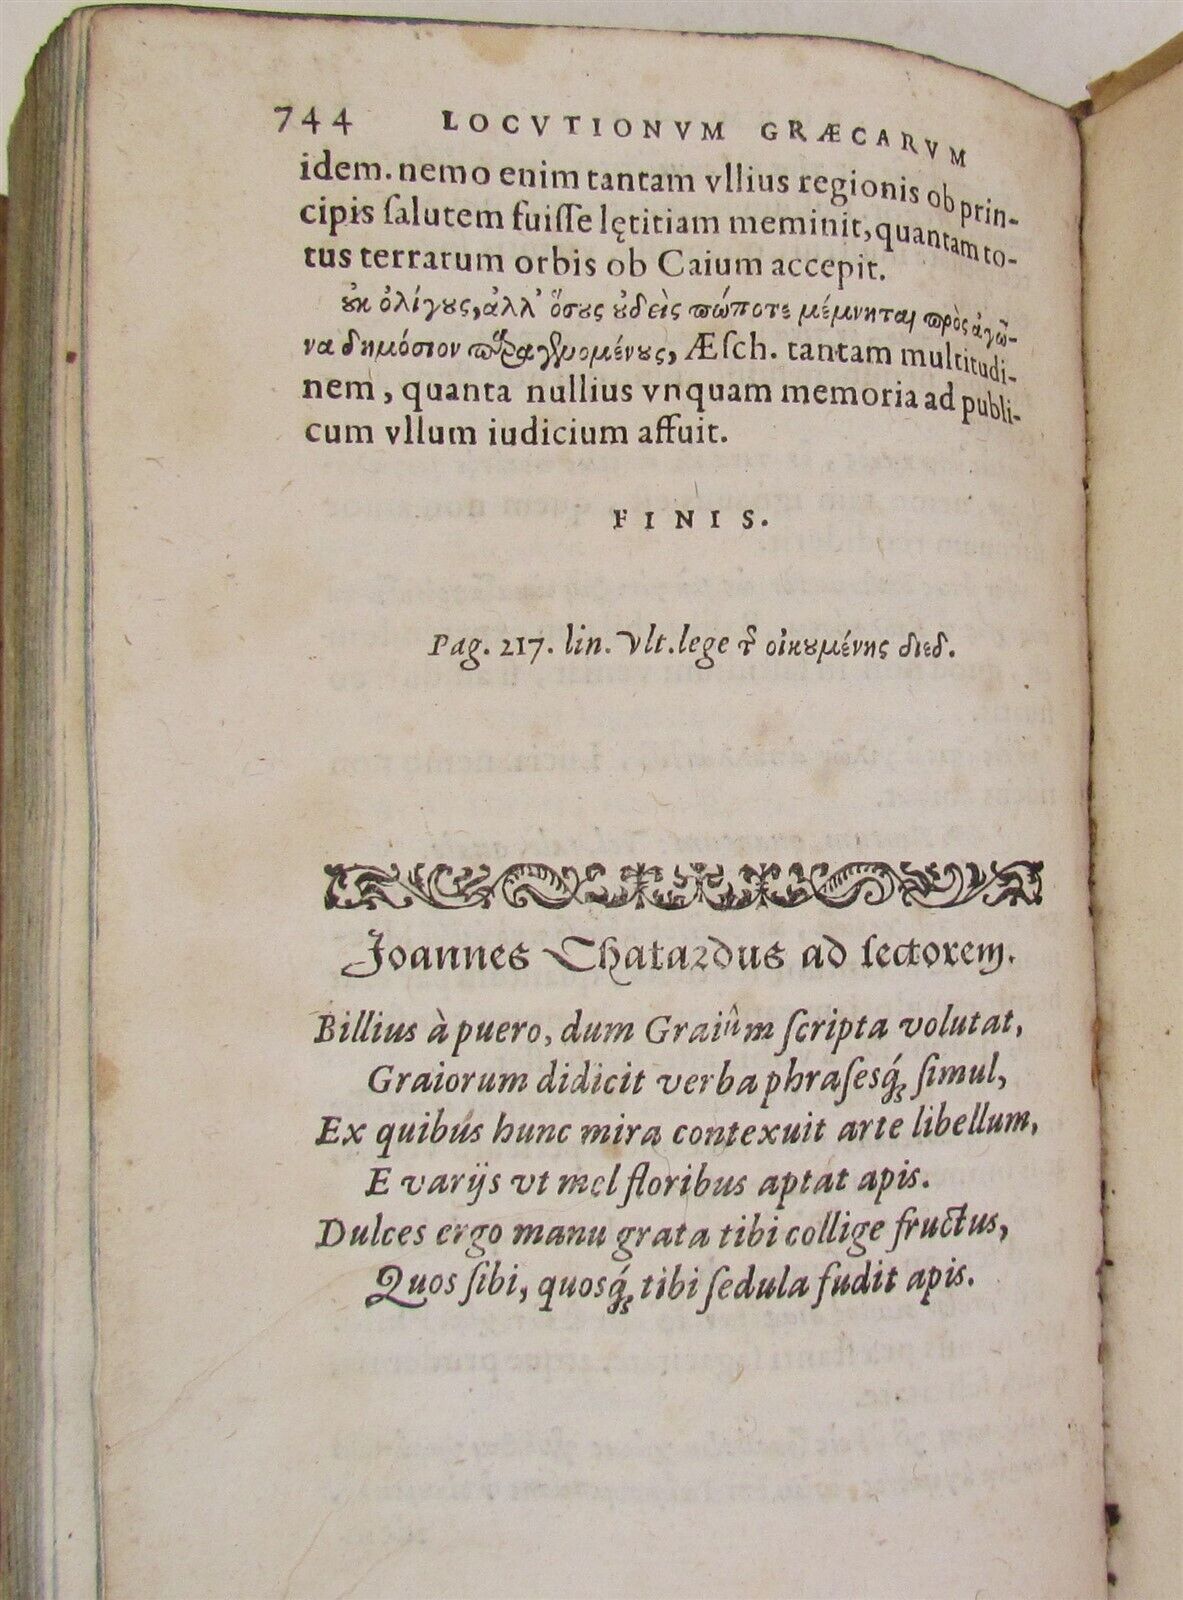 744 LOCVTIONVM GRÆCARVM
idem. nemo enim tantam vllius regionis ob prin-
cipis ſalutem fuiſſe lętitiam meminit, quantam to-
tus terrarum orbis ob Caium accepit.
ȣκ ὀλίγȣς, ἀλλ' ὅσȣς ȣ̓δεὶς πώποτε μέμνηται πρὸς ἀγῶ-
να δημόσιον παραγενομένȣς, Æſch. tantam multitudi-
nem, quanta nullius vnquam memoria ad publi-
cum vllum iudicium affuit.
FINIS.
Pag. 217. lin. vlt. lege τ͂ οἰκȣμένης διεδ.
Joannes Chatardus ad lectorem.
Billius à puero, dum Graiûm ſcripta volutat,
Graiorum didicit verba phraſesq́ꝫ ſimul,
Ex quibus hunc mira contexuit arte libellum,
E varijs vt mel floribus aptat apis.
Dulces ergo manu grata tibi collige fructus,
Quos ſibi, quosq́ꝫ tibi ſedula fudit apis.